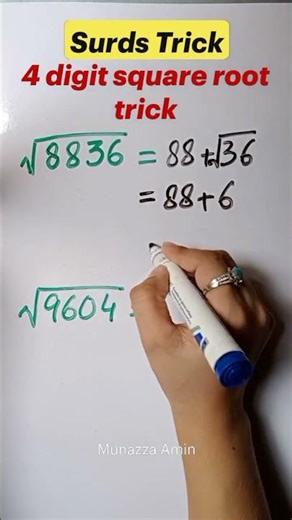 Surds Trick
4 digit square root
trick
√8836 = 88 + √36
= 88 + 6
√9604 =
Munazza Amin